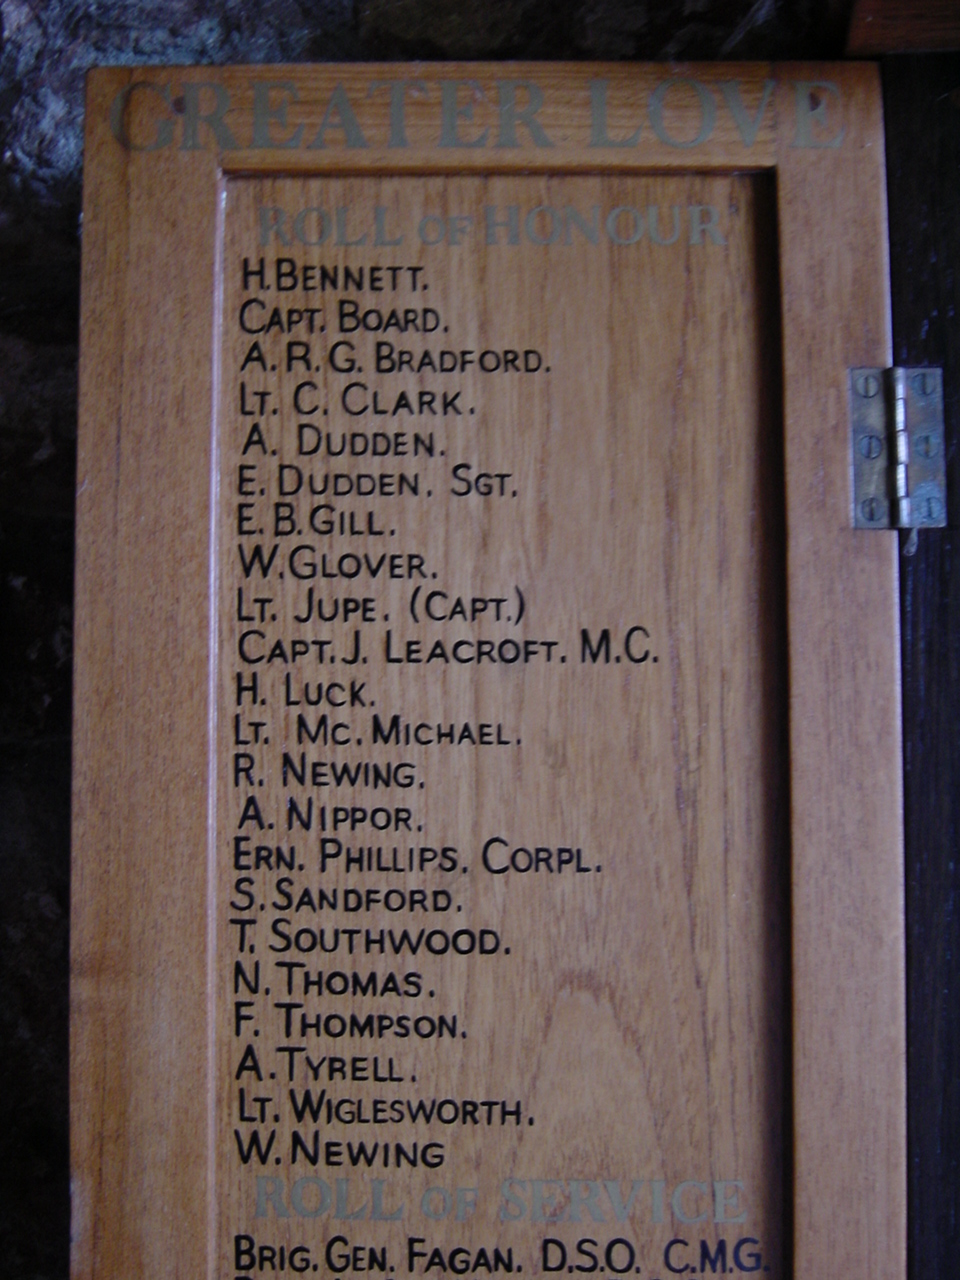 GREATER LOVE
ROLL OF HONOUR
H. BENNETT.
CAPT. BOARD.
A. R. G. BRADFORD.
LT. C. CLARK.
A. DUDDEN.
E. DUDDEN. SGT.
E. B. GILL.
W. GLOVER.
LT. JUPE. (CAPT.)
CAPT. J. LEACROFT. M.C.
H. LUCK.
LT. MC. MICHAEL.
R. NEWING.
A. NIPPOR.
ERN. PHILLIPS. CORPL.
S. SANDFORD.
T. SOUTHWOOD.
N. THOMAS.
F. THOMPSON.
A. TYRELL.
LT. WIGLESWORTH.
W. NEWING
ROLL OF SERVICE
BRIG. GEN. FAGAN. D.S.O. C.M.G.